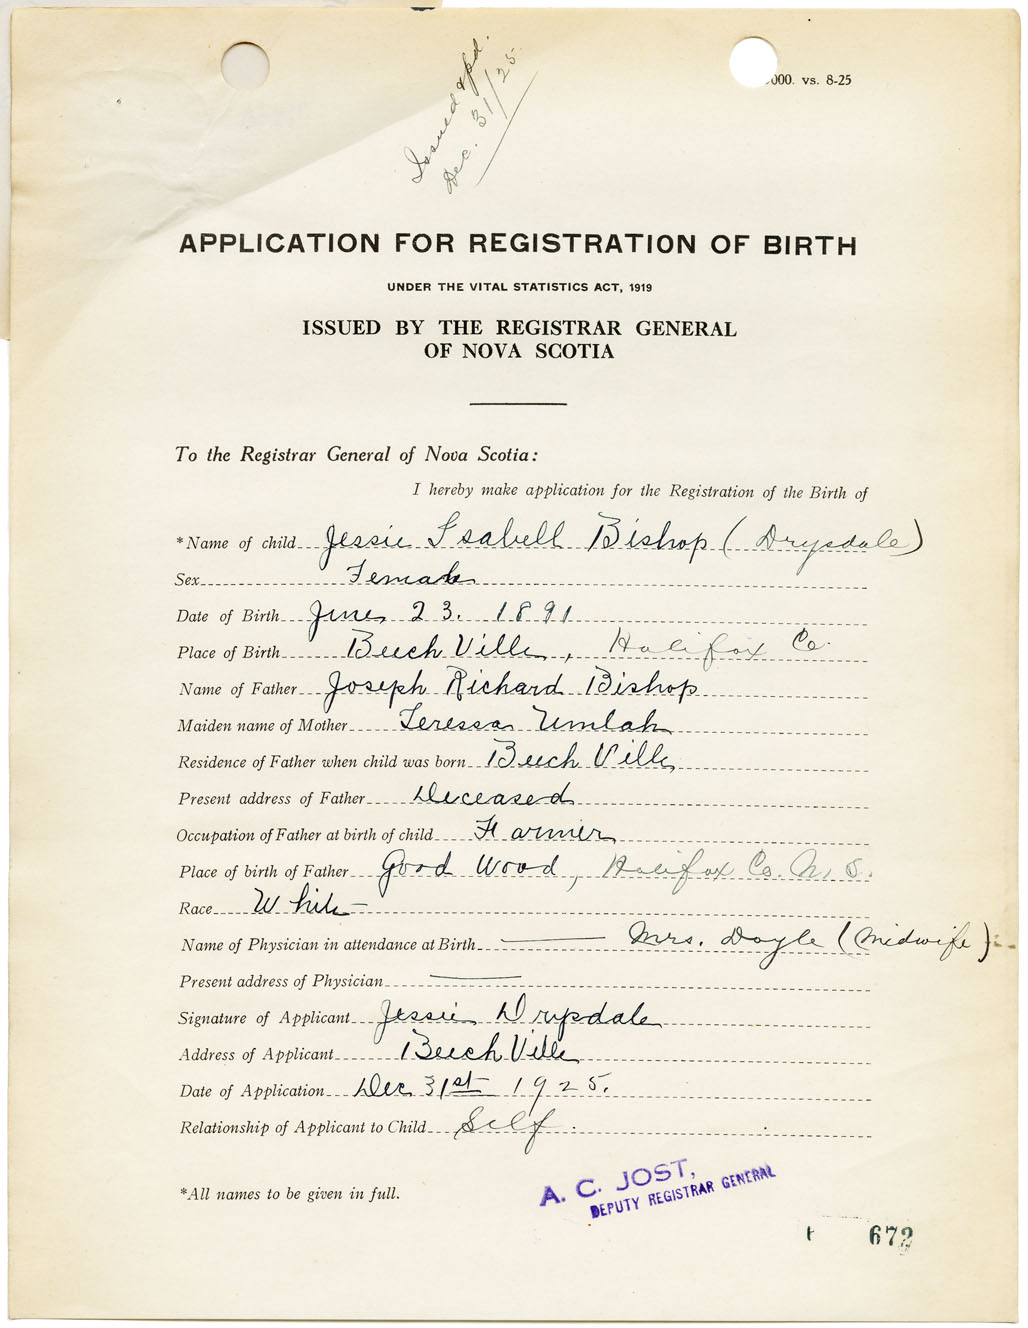 Issued & pd.
Dec. 31/25
000. vs. 8-25
APPLICATION FOR REGISTRATION OF BIRTH
UNDER THE VITAL STATISTICS ACT, 1919
ISSUED BY THE REGISTRAR GENERAL
OF NOVA SCOTIA
To the Registrar General of Nova Scotia:
I hereby make application for the Registration of the Birth of
*Name of child Jessie Isabell Bishop (Drysdale)
Sex Female
Date of Birth June 23. 1891
Place of Birth Beech Ville, Halifax Co.
Name of Father Joseph Richard Bishop
Maiden name of Mother Teressa Umlah
Residence of Father when child was born Beech Ville
Present address of Father Deceased
Occupation of Father at birth of child Farmer
Place of birth of Father Good Wood, Halifax Co. N. S.
Race White
Name of Physician in attendance at Birth Mrs. Doyle (Midwife)
Present address of Physician
Signature of Applicant Jessie Drysdale
Address of Applicant Beech Ville
Date of Application Dec 31st 1925.
Relationship of Applicant to Child Self.
*All names to be given in full.
A. C. JOST,
DEPUTY REGISTRAR GENERAL
672